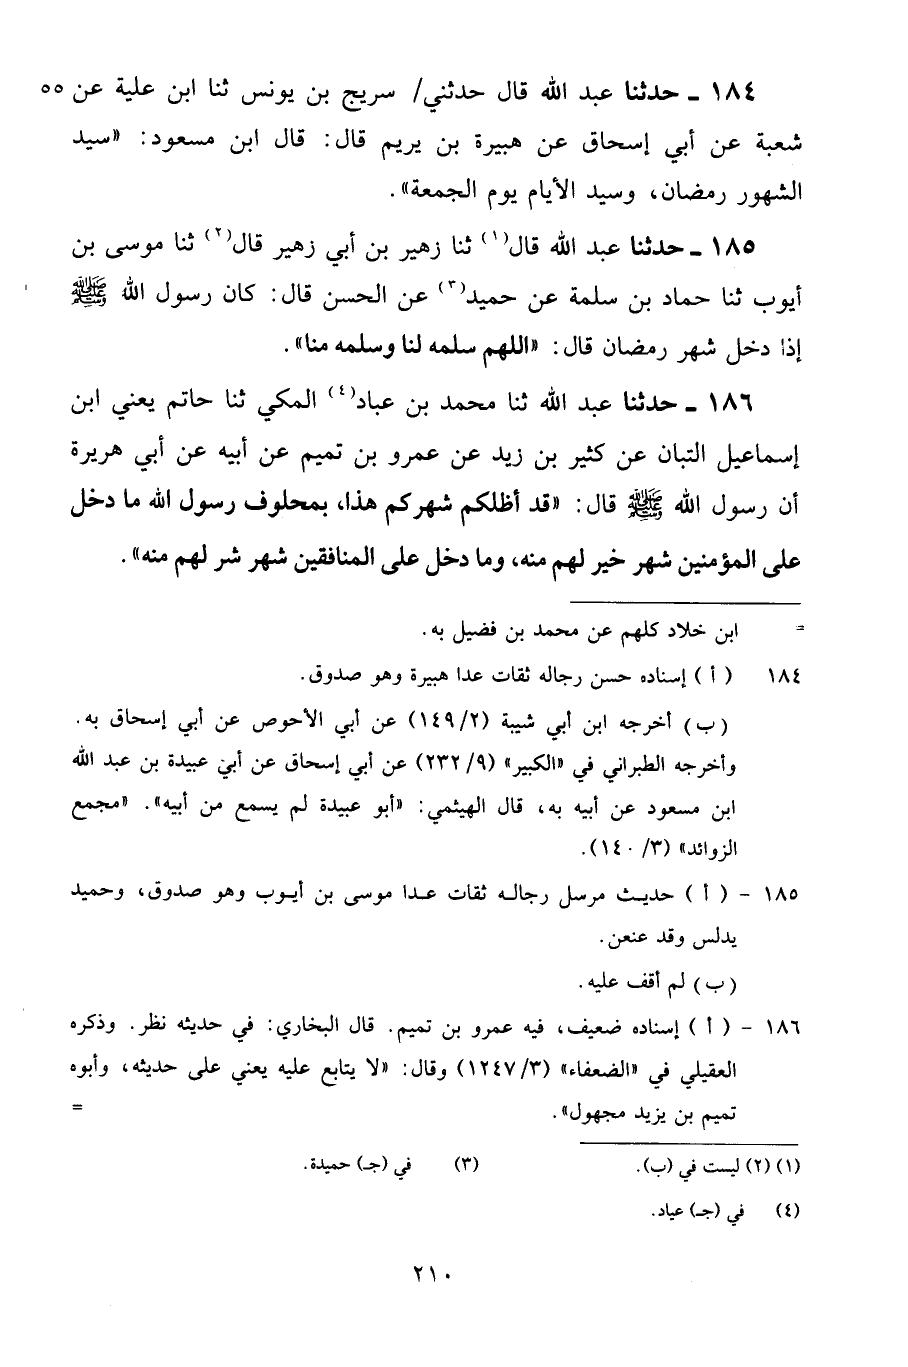 ١٨٤ ـ حدثنا عبد الله قال حدثني/ سريج بن يونس ثنا ابن علية عن ٥٥
شعبة عن أبي إسحاق عن هبيرة بن يريم قال: قال ابن مسعود: «سيد
الشهور رمضان، وسيد الأيام يوم الجمعة».
١٨٥ ـ حدثنا عبد الله قال(١) ثنا زهير بن أبي زهير قال(٢) ثنا موسى بن
أيوب ثنا حماد بن سلمة عن حميد(٣) عن الحسن قال: كان رسول الله ﷺ
إذا دخل شهر رمضان قال: «اللهم سلمه لنا وسلمه منا».
١٨٦ ـ حدثنا عبد الله ثنا محمد بن عباد(٤) المكي ثنا حاتم يعني ابن
إسماعيل التبان عن كثير بن زيد عن عمرو بن تميم عن أبيه عن أبي هريرة
أن رسول الله ﷺ قال: «قد أظلكم شهركم هذا، بمحلوف رسول الله ما دخل
على المؤمنين شهر خير لهم منه، وما دخل على المنافقين شهر شر لهم منه».
= ابن خلاد كلهم عن محمد بن فضيل به.
١٨٤ (أ) إسناده حسن رجاله ثقات عدا هبيرة وهو صدوق.
(ب) أخرجه ابن أبي شيبة (١٤٩/٢) عن أبي الأحوص عن أبي إسحاق به.
وأخرجه الطبراني في «الكبير» (٢٣٢/٩) عن أبي إسحاق عن أبي عبيدة بن عبد الله
ابن مسعود عن أبيه به، قال الهيثمي: «أبو عبيدة لم يسمع من أبيه». «مجمع
الزوائد» (١٤٠/٣).
١٨٥ - (أ) حديث مرسل رجاله ثقات عدا موسى بن أيوب وهو صدوق، وحميد
يدلس وقد عنعن.
(ب) لم أقف عليه.
١٨٦ - (أ) إسناده ضعيف، فيه عمرو بن تميم. قال البخاري: في حديثه نظر. وذكره
العقيلي في «الضعفاء» (١٢٤٧/٣) وقال: «لا يتابع عليه يعني على حديثه، وأبوه
تميم بن يزيد مجهول». =
(١) (٢) ليست في (ب). (٣) في (جـ) حميدة.
(٤) في (جـ) عياد.
٢١٠